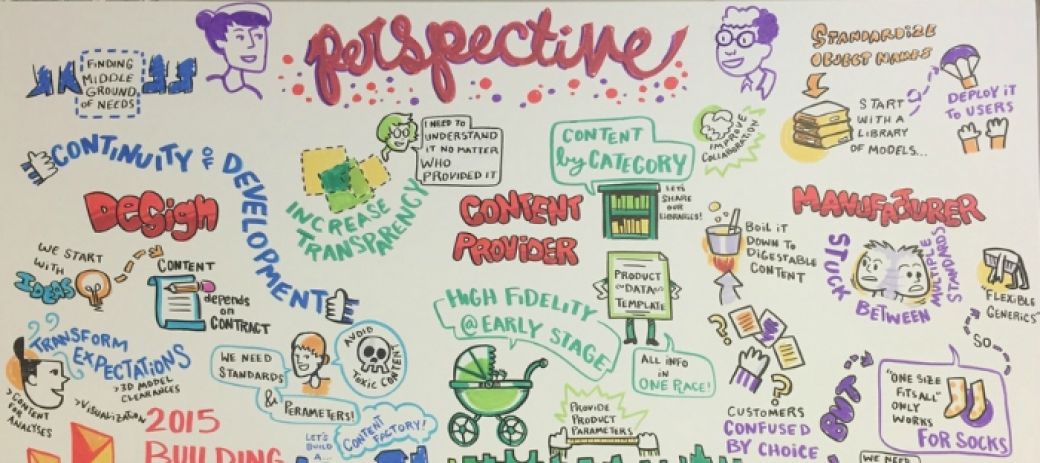 perspective
FINDING
MIDDLE
GROUND
OF NEEDS
STANDARDIZE
OBJECT NAMES
START
WITH A
LIBRARY
OF MODELS...
DEPLOY IT
TO USERS
CONTINUITY OF DEVELOPMENT
I NEED TO
UNDERSTAND
IT NO MATTER
WHO
PROVIDED IT
INCREASE
TRANSPARENCY
CONTENT
by CATEGORY
IMPROVE
COLLABORATION
DESIGN
CONTENT
PROVIDER
LET'S
SHARE
OUR
LIBRARIES!
MANUFACTURER
WE START
WITH
IDEAS
CONTENT
depends
on
CONTRACT
BOIL IT
DOWN TO
DIGESTABLE
CONTENT
STUCK
BETWEEN
MULTIPLE
STANDARDS
"FLEXIBLE
GENERICS"
PRODUCT
~DATA~
TEMPLATE
HIGH FIDELITY
@ EARLY STAGE
ALL INFO
IN
ONE RACE!
TRANSFORM
EXPECTATIONS
>3D MODEL
CLEARANCES
>VISUALIZATION
>CONTENT
FOR
ANALYSES
WE NEED
STANDARDS
& PERAMETERS!
AVOID
TOXIC CONTENT
SO
"ONE SIZE
FITS ALL"
ONLY
WORKS
FOR SOCKS
BUT
CUSTOMERS
CONFUSED
BY CHOICE
PROVIDE
PRODUCT
PARAMETERS
2015
BUILDING
LET'S
BUILD
A...
CONTENT
FACTORY!
WE NEED